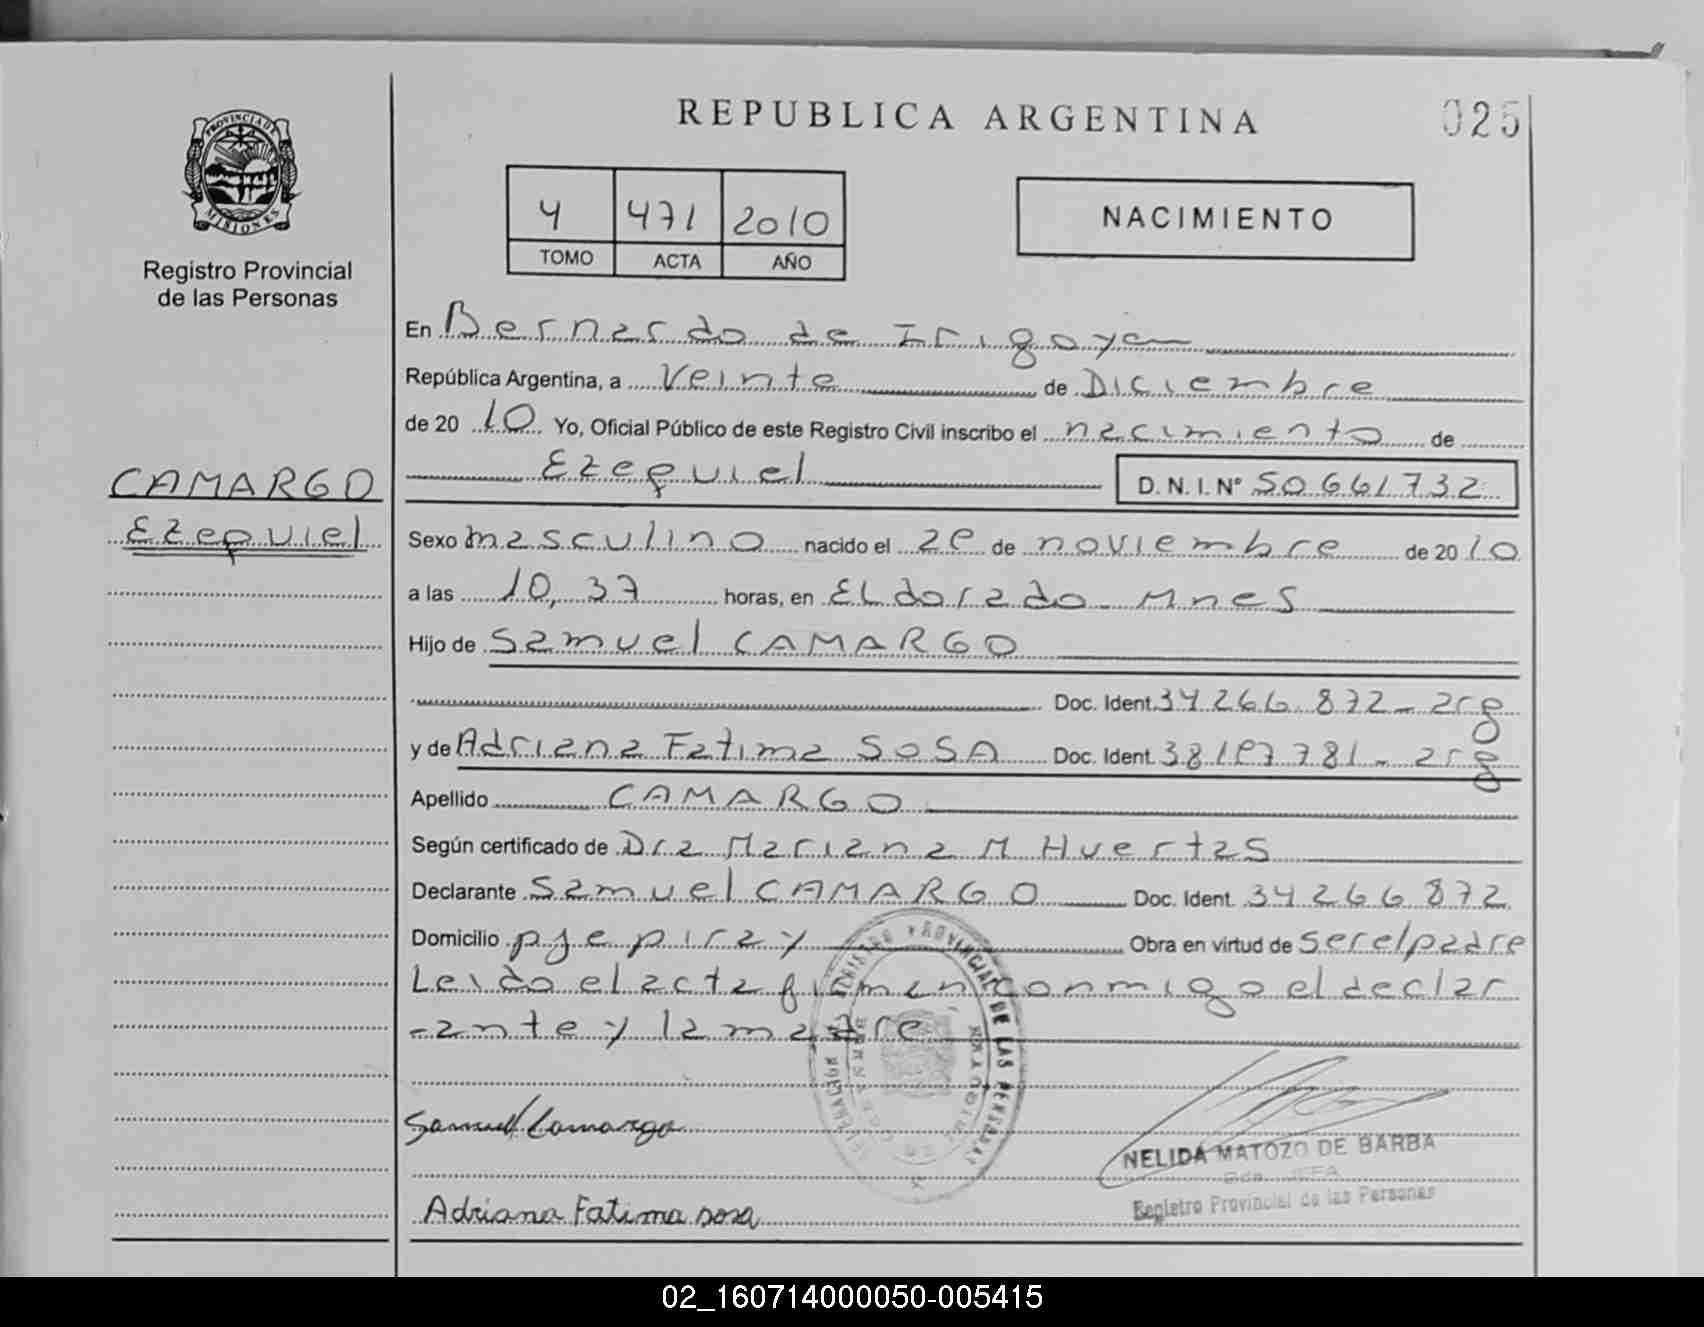 REPUBLICA ARGENTINA
025
PROVINCIA DE MISIONES
Registro Provincial
de las Personas
4 471 2010
TOMO ACTA AÑO
NACIMIENTO
En Bernardo de Irigoyen
República Argentina, a Veinte de Diciembre
de 2010 Yo, Oficial Público de este Registro Civil inscribo el nacimiento de
Ezequiel D.N.I. N° 50661732
CAMARGO
Ezequiel
Sexo masculino nacido el de noviembre de 2010
a las 10,37 horas, en Eldorado Mnes
Hijo de Samuel CAMARGO
Doc. Ident. 34266872 - arg
y de Adriana Fatima SOSA Doc. Ident. 781 - arg
Apellido CAMARGO
Según certificado de Dra Mariana M Huertas
Declarante Samuel CAMARGO Doc. Ident. 34266872
Domicilio pje piray Obra en virtud de ser el padre
Leido el acta firman conmigo el declar
-ante y la madre
Samuel Camargo
NELIDA MATOZO DE BARBA
JEFA
Registro Provincial de las Personas
Adriana Fatima sosa
02_160714000050-005415